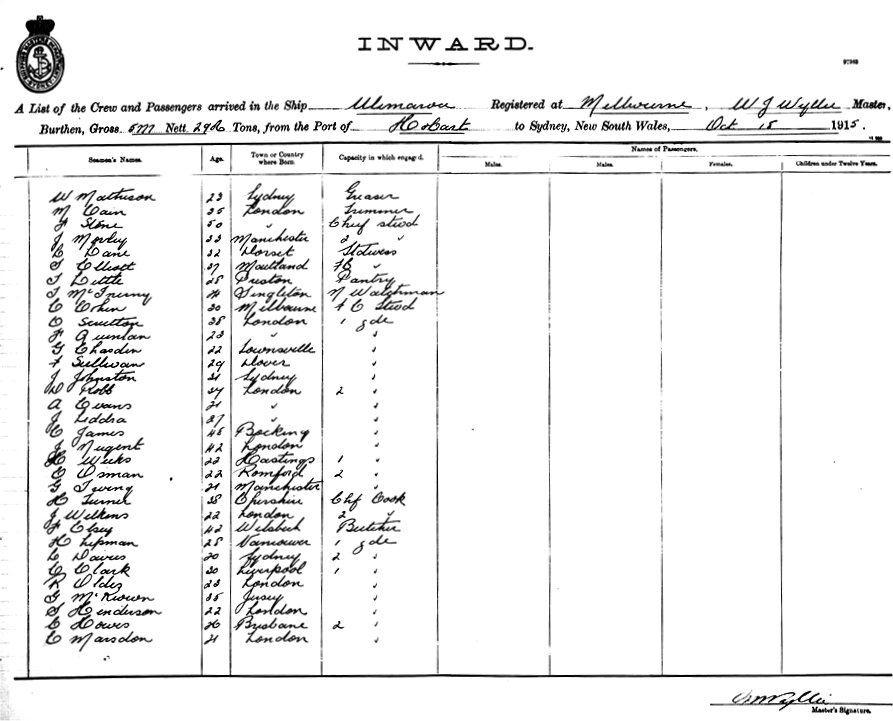 INWARD.
A List of the Crew and Passengers arrived in the Ship Ulimaroa Registered at Melbourne, W J Wyllie Master,
Burthen, Gross 5777 Nett Tons, from the Port of Hobart to Sydney, New South Wales, Oct 15 1915.
Seamen's Names. Age. Town or Country where Born. Capacity in which engaged. Names of Passengers.
Males. Males. Females. Children under Twelve Years.
W Mathieson 23 Sydney Greaser
M Cain 35 London Trimmer
F Stone 50 " Chief stwd
J Morley 33 Manchester 2 "
C Dane 32 Dorset Stdwess
T Elliott 37 Maitland "
T Little 28 Preston Pantry
T McInerny 21 Singleton N Watchman
C Cohen 30 Melbourne Stwd
C Scrutton 38 London 1 gde
F Quinlan 23 " "
G 22 Townsville "
F Sullivan 29 Dover "
J Johnston 21 Sydney "
D Robb 34 London 2 "
A Evans 21 " "
J Liddra 37 " "
C James 45 Bocking "
J Nugent 42 London "
H Weeks 22 Hastings 1 "
C Osman 22 Romford 2 "
G Irving 21 Manchester "
H Turner 38 Cheshire Chf Cook
J Wilkins 22 London 2 "
F Elsey 42 Wisbech Butcher
H Lipman 25 Vancouver 1 gde
C Davies 20 Sydney 2 "
C Clark 30 Liverpool 1 "
R 23 London "
G McKeown 35 Jersey "
S Henderson 22 London "
C Howes 26 Brisbane 2 "
C Marsdon 21 London "
W J Wyllie
Master's Signature.